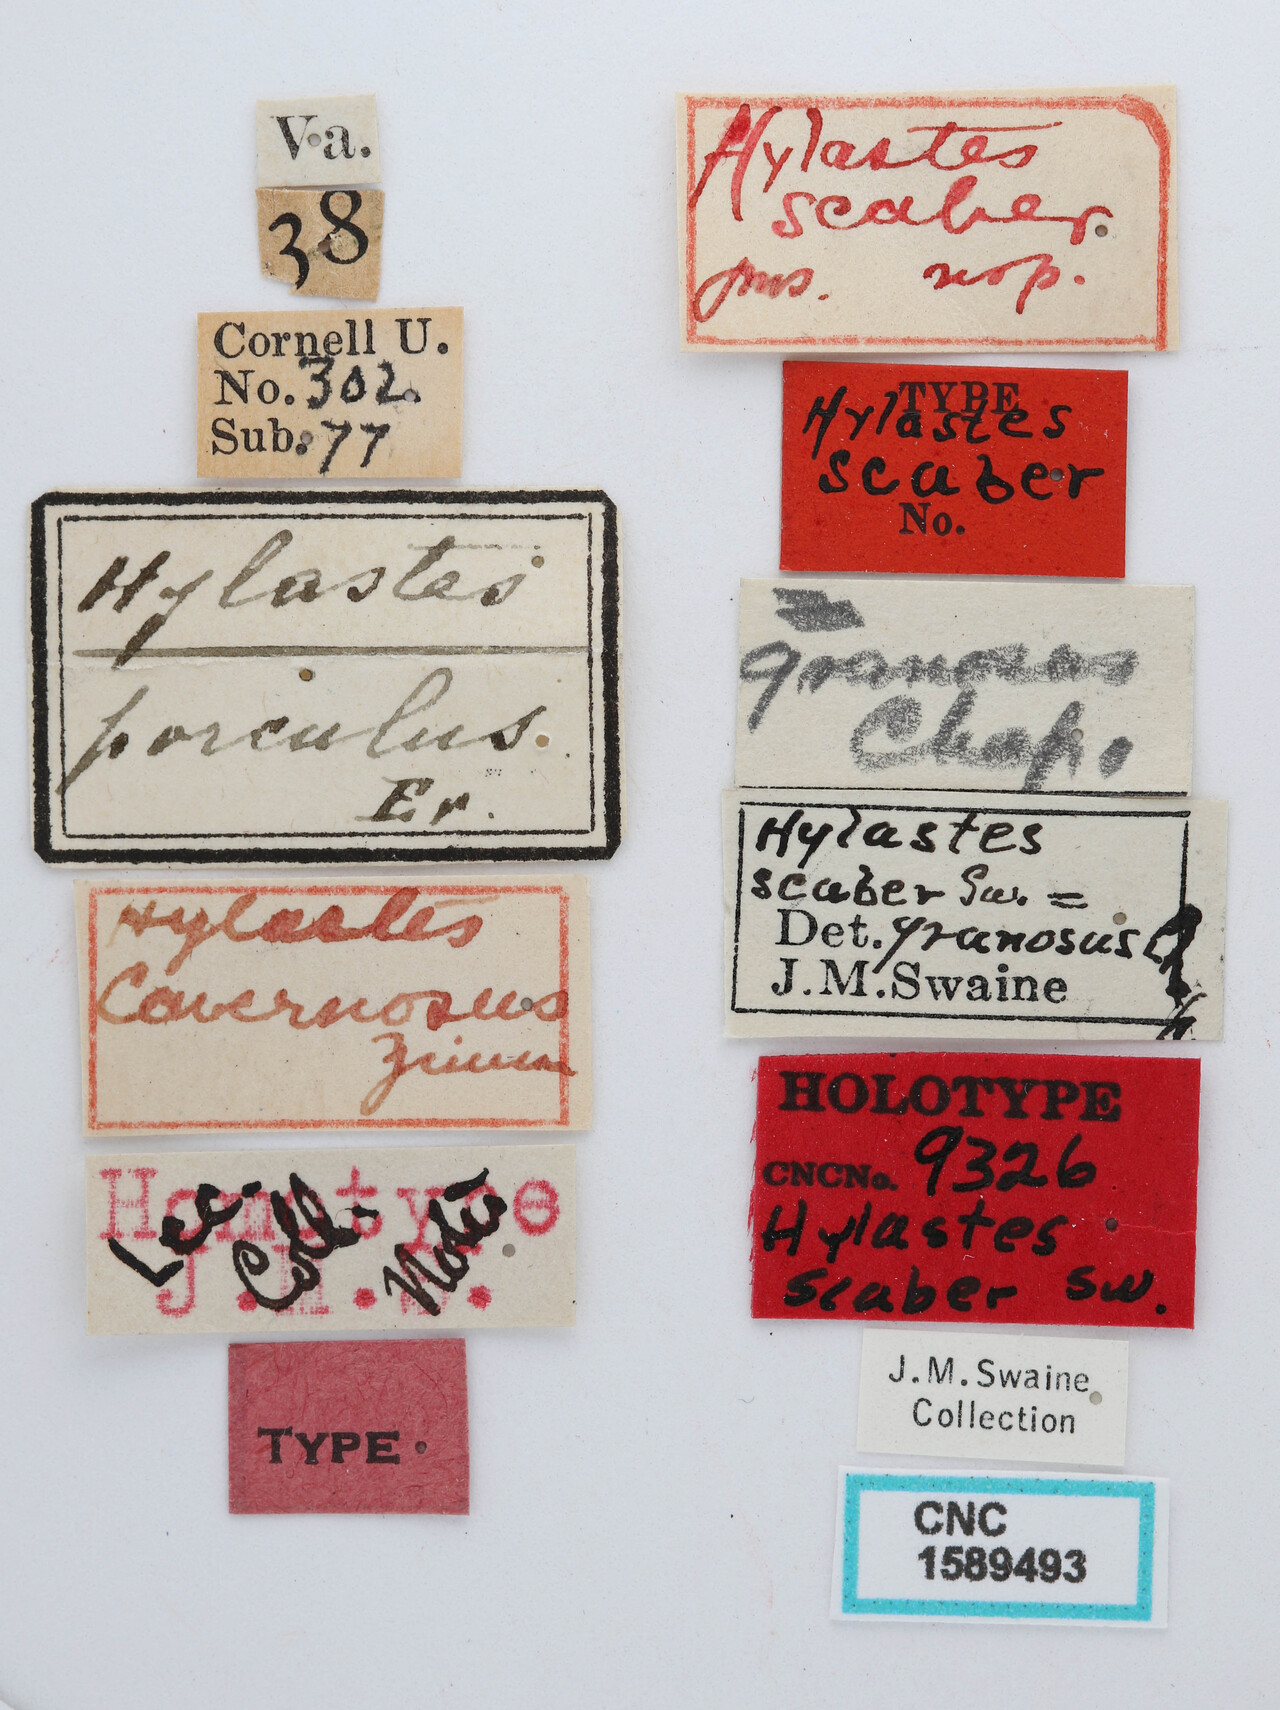 Va.
38
Cornell U.
No. 302.
Sub. 77
Hylastes
porculus.
Er.
Hylastes
Cavernosus
Zimm
Homotype
J.M.S.
Lec.
Coll.
Notes
TYPE
Hylastes
scaber.
ms. nsp.
TYPE
Hylastes
scaber
No.
granosus
Chap.
Hylastes
scaber Sw. =
Det. granosus
J.M.Swaine
HOLOTYPE
CNCNo. 9326
Hylastes
scaber Sw.
J.M.Swaine
Collection
CNC
1589493